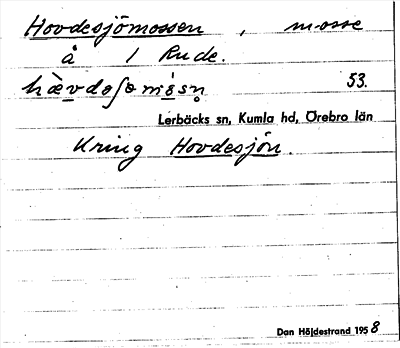 Hovdesjömossen, mosse
å 1 Rude.
53.
Lerbäcks sn, Kumla hd, Örebro län
Kring Hovdesjön.
Dan Höjdestrand 1958